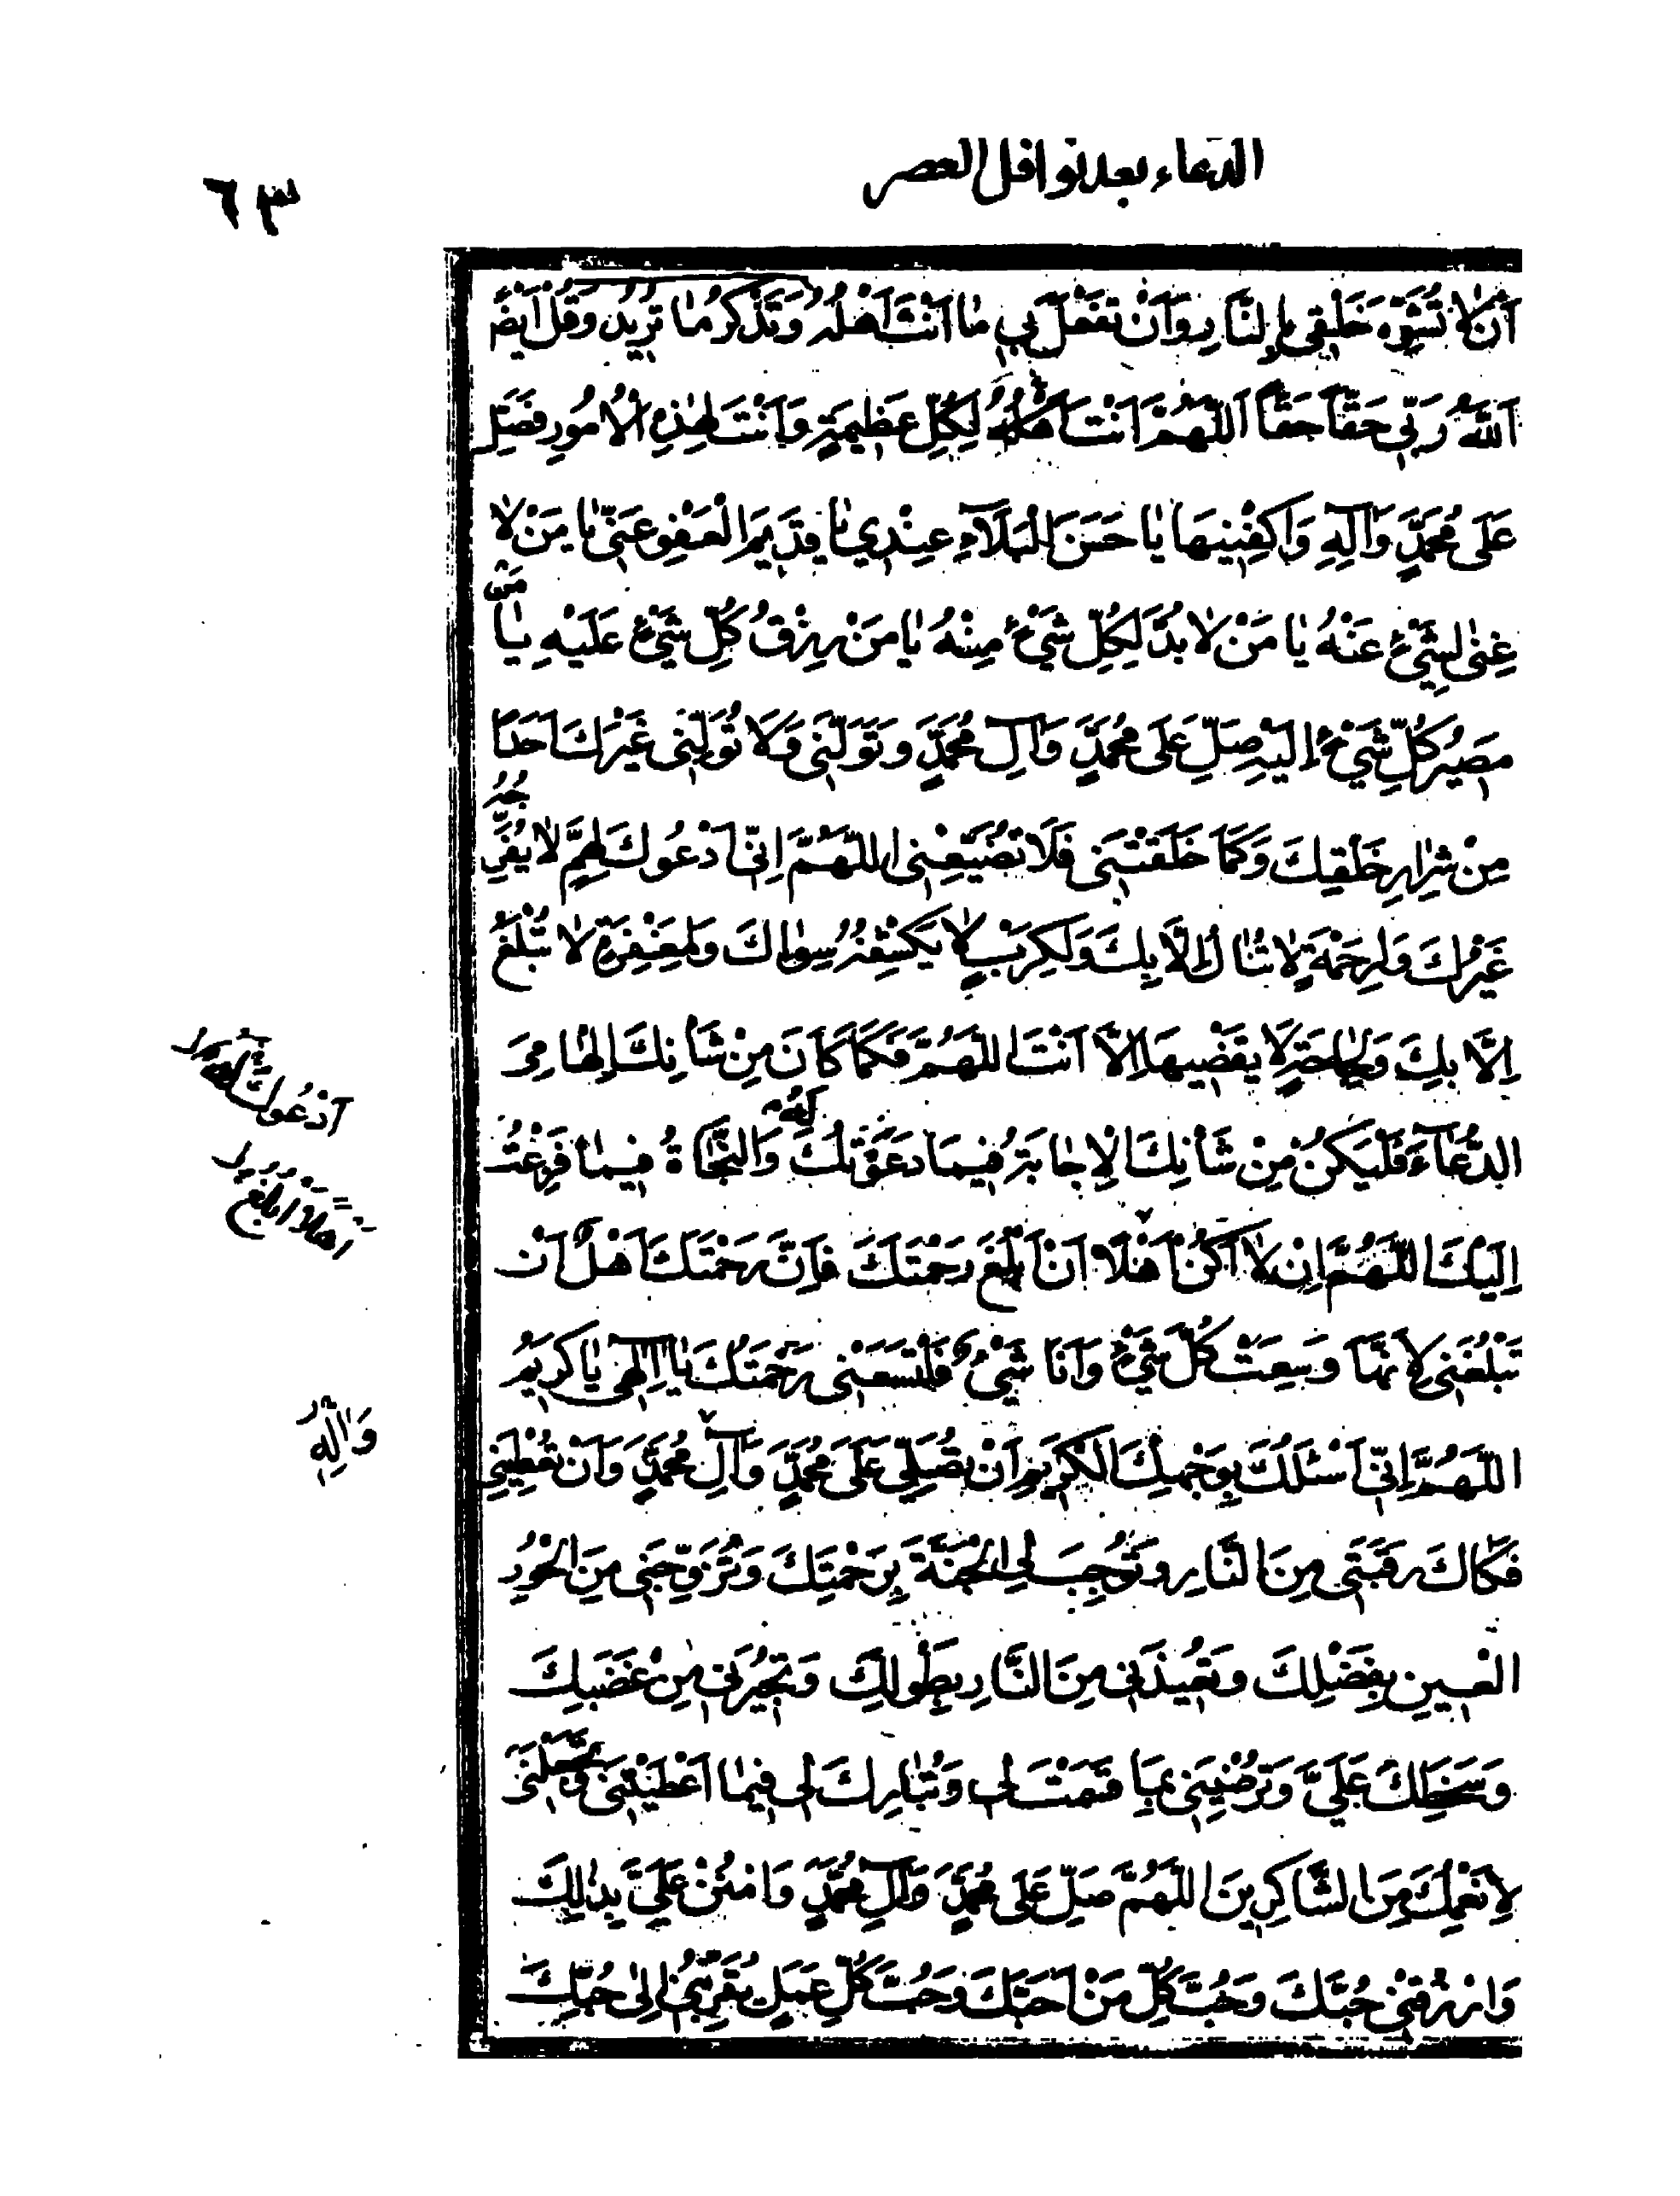 الدعاء بعد نوافل العصر
٦٣
اَنْ لا تُشَوِّهَ خَلْقِي بِالنَّارِ وَاَنْ تَفْعَلَ بِي مٰا اَنْتَ اَهْلُهُ وَتَذْكُرُ مٰا تُرِيدُ وَقُلْ اَيْضً
اَللّٰهُ رَبِّي حَقّاً حَقّاً اَللّٰهُمَّ اَنْتَ لِكُلِّ عَظِيمَةٍ وَاَنْتَ لِهٰذِهِ الْاُمُورِ فَصَلِّ
عَلىٰ مُحَمَّدٍ وَآلِهِ وَاكْفِنِيهَا يٰا حَسَنَ الْبَلَآءِ عِنْدِي يٰا قَدِيمَ الْعَفْوِ عَنِّي يٰا مَنْ لاٰ
غِنىٰ لِشَيْءٍ عَنْهُ يٰا مَنْ لاٰ بُدَّ لِكُلِّ شَيْءٍ مِنْهُ يٰا مَنْ رِزْقُ كُلِّ شَيْءٍ عَلَيْهِ يٰا مَنْ
مَصِيرُ كُلِّ شَيْءٍ اِلَيْهِ صَلِّ عَلىٰ مُحَمَّدٍ وَآلِ مُحَمَّدٍ وَتَوَلَّنِي وَلَا تُوَلِّنِي غَيْرَكَ اَحَداً
مِنْ شِرٰارِ خَلْقِكَ وَكَمٰا خَلَقْتَنِي فَلَا تُضَيِّعْنِي اللّٰهُمَّ اِنِّي اَدْعُوكَ لِهَمٍّ لاٰ يُفَرِّجُهُ
غَيْرُكَ وَلِرَحْمَةٍ لاٰ تُنٰالُ اِلَّا بِكَ وَلِكَرْبٍ لاٰ يَكْشِفُهُ سِوٰاكَ وَلِمَغْفِرَةٍ لاٰ تُبْلَغُ
اِلَّا بِكَ وَلِحٰاجَةٍ لاٰ يَقْضِيهٰا اِلَّا اَنْتَ اللّٰهُمَّ فَكَمٰا كٰانَ مِنْ شَأْنِكَ اِلْهٰامِيَ
الدُّعَآءَ فَلْيَكُنْ مِنْ شَأْنِكَ الْاِجٰابَةُ فِيمٰا دَعَوْتُكَ لَهُ وَالنَّجٰاةُ فِيمٰا فَزِعْتُ
اِلَيْكَ اللّٰهُمَّ اِنْ لاٰ اَكُنْ اَهْلًا اَنْ اَبْلُغَ رَحْمَتَكَ فَاِنَّ رَحْمَتَكَ اَهْلٌ اَنْ
تَبْلُغَنِي لِاَنَّهٰا وَسِعَتْ كُلَّ شَيْءٍ وَاَنَا شَيْءٌ فَلْتَسَعْنِي رَحْمَتُكَ يٰا اِلٰهِي يٰا كَرِيمُ
اللّٰهُمَّ اِنِّي اَسْئَلُكَ بِوَجْهِكَ الْكَرِيمِ اَنْ تُصَلِّيَ عَلىٰ مُحَمَّدٍ وَآلِ مُحَمَّدٍ وَاَنْ تُعْطِيَنِي
فَكٰاكَ رَقَبَتِي مِنَ النَّارِ وَتُوجِبَ لِيَ الْجَنَّةَ بِرَحْمَتِكَ وَتُزَوِّجَنِي مِنَ الْحُورِ
الْعِينِ بِفَضْلِكَ وَتُعِيذَنِي مِنَ النَّارِ بِطَوْلِكَ وَتُجِيرَنِي مِنْ غَضَبِكَ
وَسَخَطِكَ عَلَيَّ وَتُرْضِيَنِي بِمٰا قَسَمْتَ لِي وَتُبٰارِكَ لِي فِيمٰا اَعْطَيْتَنِي وَتَجْعَلَنِي
لِاَنْعُمِكَ مِنَ الشَّاكِرِينَ اللّٰهُمَّ صَلِّ عَلىٰ مُحَمَّدٍ وَآلِ مُحَمَّدٍ وَامْنُنْ عَلَيَّ بِذٰلِكَ
وَارْزُقْنِي حُبَّكَ وَحُبَّ كُلِّ مَنْ اَحَبَّكَ وَحُبَّ كُلِّ عَمَلٍ يُقَرِّبُنِي اِلىٰ حُبِّكَ
اَدْعُوكَ
اَهْلًا اَنْ اَبْلُغَ
وَآلِهِ